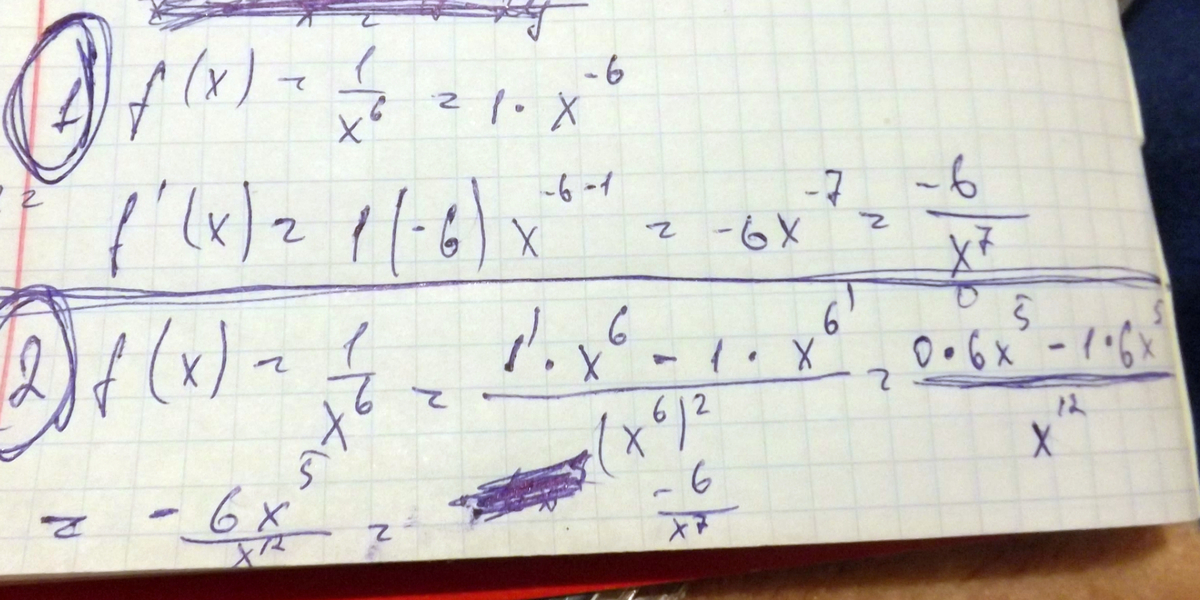 1 f(x) = 1/x⁶ = 1 · x⁻⁶
f'(x) = 1(-6) x⁻⁶⁻¹ = -6x⁻⁷ = -6/x⁷
2 f(x) = 1/x⁶ = (1' · x⁶ - 1 · x⁶')/(x⁶)² = (0 · 6x⁵ - 1 · 6x⁵)/x¹²
= - 6x⁵/x¹² = -6/x⁷